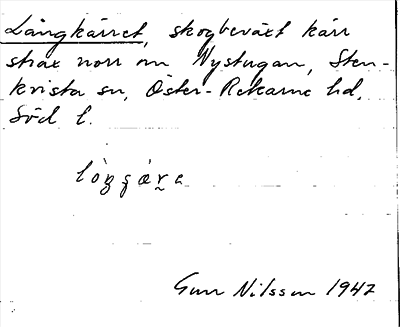 Långkärret, skogbeväxt kärr
strax norr om Nystugan, Sten-
kvista sn, Öster-Rekarne hd,
Söd l.
Gun Nilsson 1947